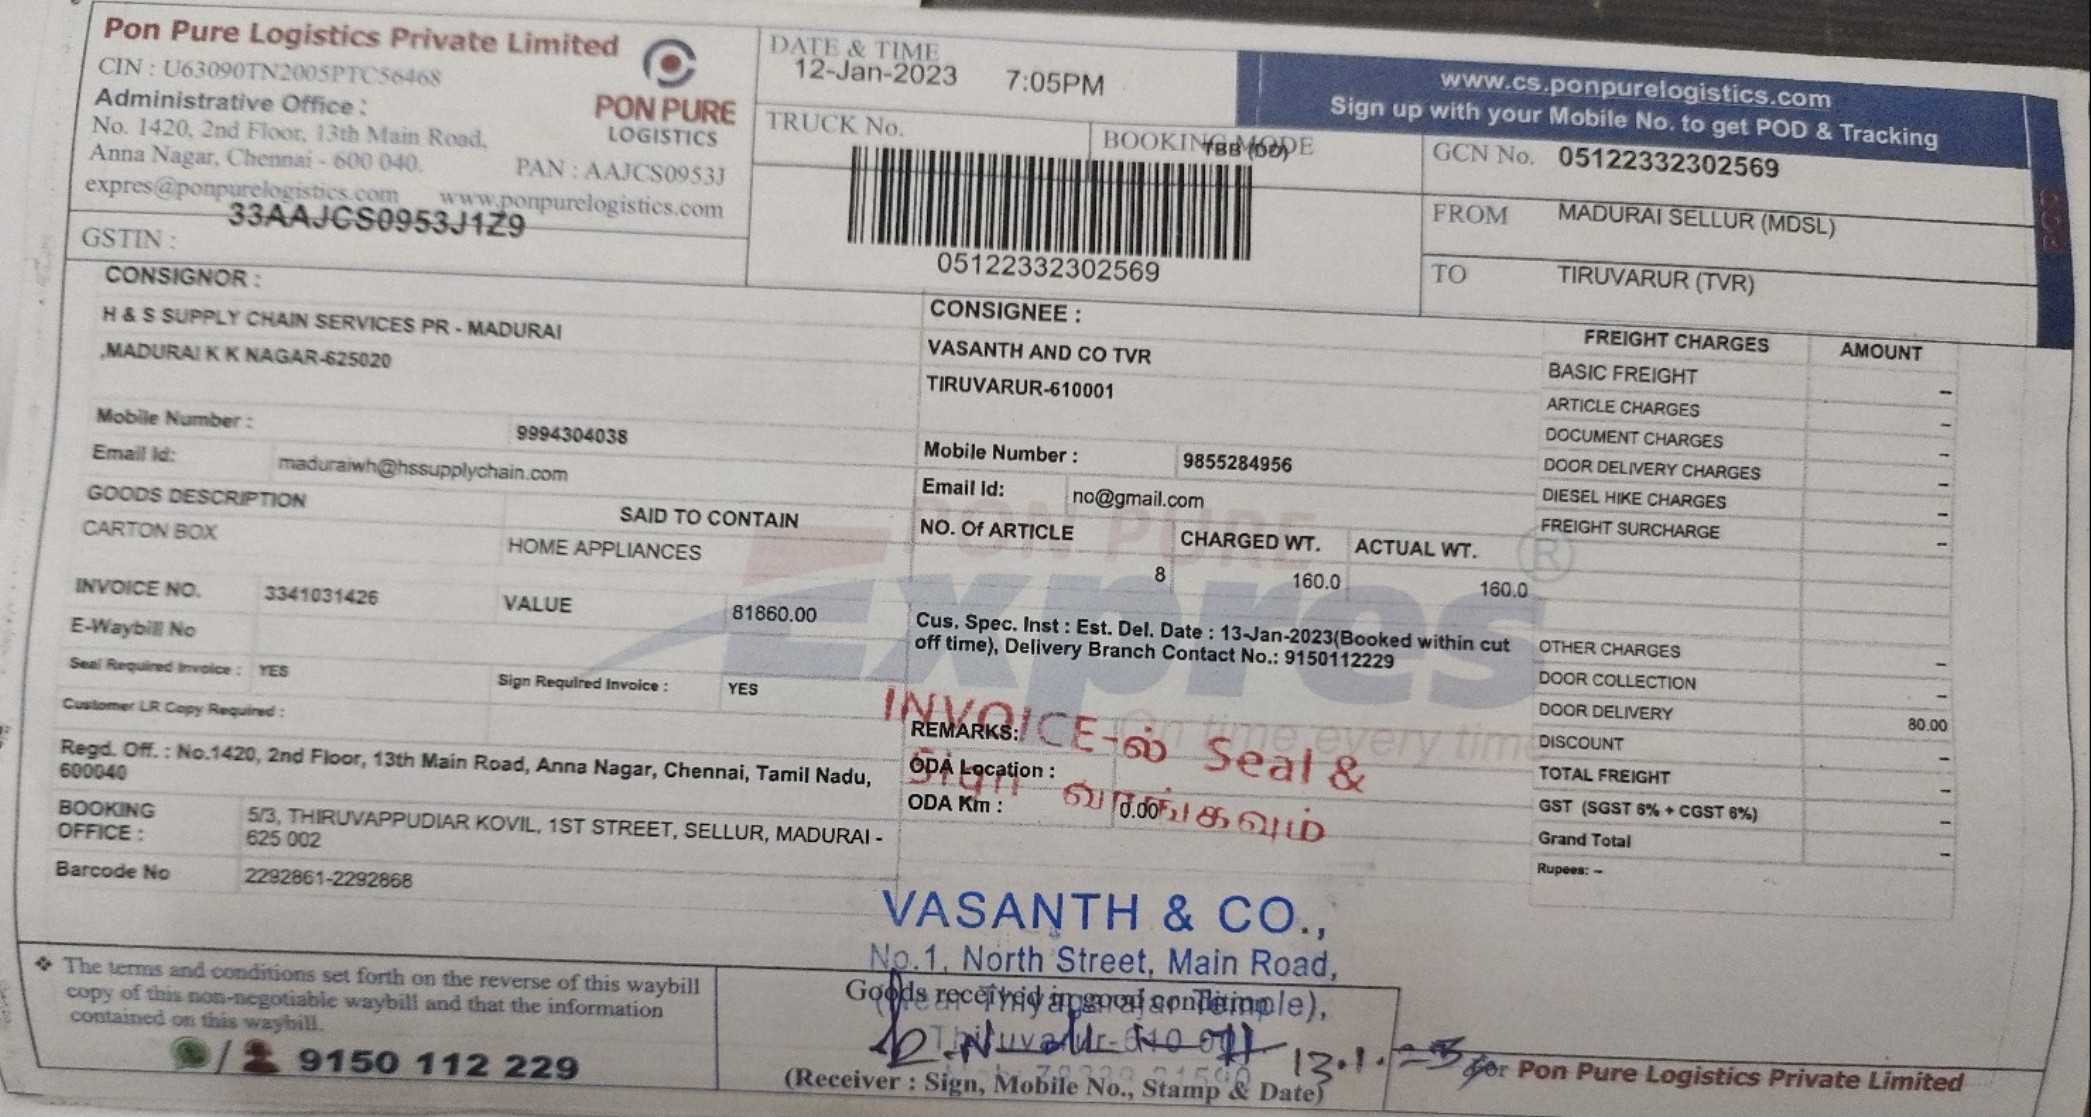 Pon Pure Logistics Private Limited
CIN : U63090TN2005PTC56468
Administrative Office :
No. 1420, 2nd Floor, 13th Main Road,
Anna Nagar, Chennai - 600 040.
PAN : AAJCS0953J
expres@ponpurelogistics.com www.ponpurelogistics.com
33AAJCS0953J1Z9
GSTIN :
PON PURE
LOGISTICS
DATE & TIME
12-Jan-2023 7:05PM
TRUCK No.
BOOKING MODE
TBB (DD)
05122332302569
www.cs.ponpurelogistics.com
Sign up with your Mobile No. to get POD & Tracking
GCN No. 05122332302569
FROM MADURAI SELLUR (MDSL)
TO TIRUVARUR (TVR)
CONSIGNOR :
H & S SUPPLY CHAIN SERVICES PR - MADURAI
,MADURAI K K NAGAR-625020
Mobile Number : 9994304038
Email Id: maduraiwh@hssupplychain.com
GOODS DESCRIPTION SAID TO CONTAIN
CARTON BOX HOME APPLIANCES
INVOICE NO. 3341031426 VALUE 81860.00
E-Waybill No
Seal Required Invoice : YES Sign Required Invoice : YES
Customer LR Copy Required :
Regd. Off. : No.1420, 2nd Floor, 13th Main Road, Anna Nagar, Chennai, Tamil Nadu,
600040
BOOKING OFFICE : 5/3, THIRUVAPPUDIAR KOVIL, 1ST STREET, SELLUR, MADURAI -
625 002
Barcode No 2292861-2292868
CONSIGNEE :
VASANTH AND CO TVR
TIRUVARUR-610001
Mobile Number : 9855284956
Email Id: no@gmail.com
NO. Of ARTICLE CHARGED WT. ACTUAL WT.
8 160.0 160.0
PON PURE
Expres ®
On time every time
Cus. Spec. Inst : Est. Del. Date : 13-Jan-2023(Booked within cut
off time), Delivery Branch Contact No.: 9150112229
REMARKS:
ODA Location :
ODA Km : 0.00
INVOICE-ல் Seal &
Sign வாங்கவும்
FREIGHT CHARGES AMOUNT
BASIC FREIGHT –
ARTICLE CHARGES –
DOCUMENT CHARGES –
DOOR DELIVERY CHARGES –
DIESEL HIKE CHARGES –
FREIGHT SURCHARGE –
OTHER CHARGES –
DOOR COLLECTION –
DOOR DELIVERY 80.00
DISCOUNT –
TOTAL FREIGHT –
GST (SGST 6% + CGST 6%) –
Grand Total –
Rupees: –
VASANTH & CO.,
No.1, North Street, Main Road,
Temple),
Goods received in good condition
13.1.
(Receiver : Sign, Mobile No., Stamp & Date)
The terms and conditions set forth on the reverse of this waybill
copy of this non-negotiable waybill and that the information
contained on this waybill.
/ 9150 112 229
for Pon Pure Logistics Private Limited